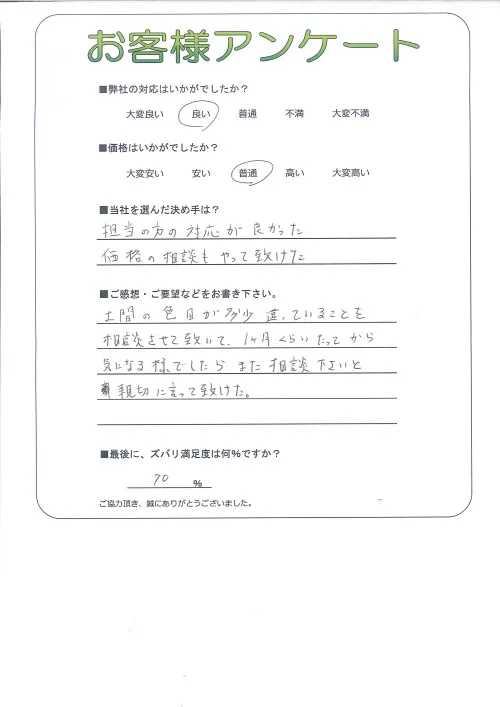 お客様アンケート
■弊社の対応はいかがでしたか？
大変良い 良い 普通 不満 大変不満
■価格はいかがでしたか？
大変安い 安い 普通 高い 大変高い
■当社を選んだ決め手は？
担当の方の対応が良かった
価格の相談もやって致けた
■ご感想・ご要望などをお書き下さい。
土間の色目が多少違っていることを
相談させて致いて、1ヶ月くらいたってから
気になる様でしたらまた相談下さいと
親切に言って致けた。
■最後に、ズバリ満足度は何％ですか？
70 ％
ご協力頂き、誠にありがとうございました。